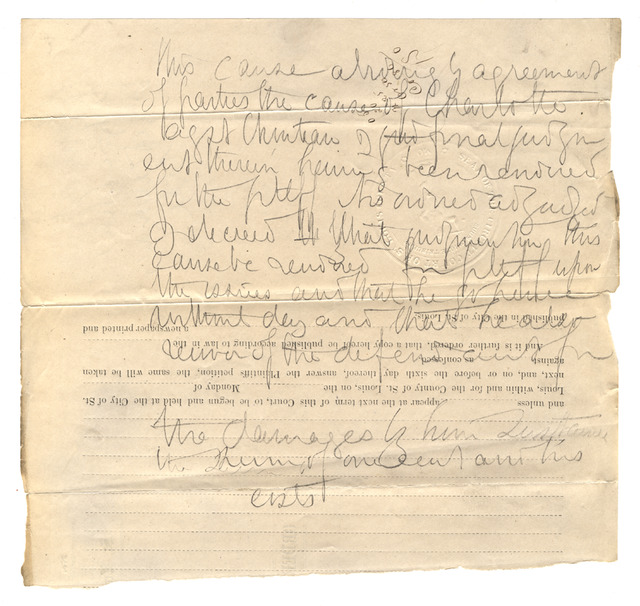 This cause abiding by agreement
of parties the cause of Charlotte
agst Chouteau & final judgm
ent therein having been rendered
for the pltff It is ordered adjudged
& decreed that judgment in this
cause be rendered for pltff upon
the issues and that he go hence
without day and that he also
recover of the defendant for
the damages by him sustained
the sum of one cent and his
costs
and unless appear at the next term of this Court, to be begun and held at the City of St.
Louis, within and for the County of St. Louis, on the Monday of
next, and, on or before the sixth day thereof, answer the Plaintiffs petition, the same will be taken
against as confessed.
And it is further ordered, that a copy hereof be published according to law in the
a newspaper printed and
published in the City of St. Louis.